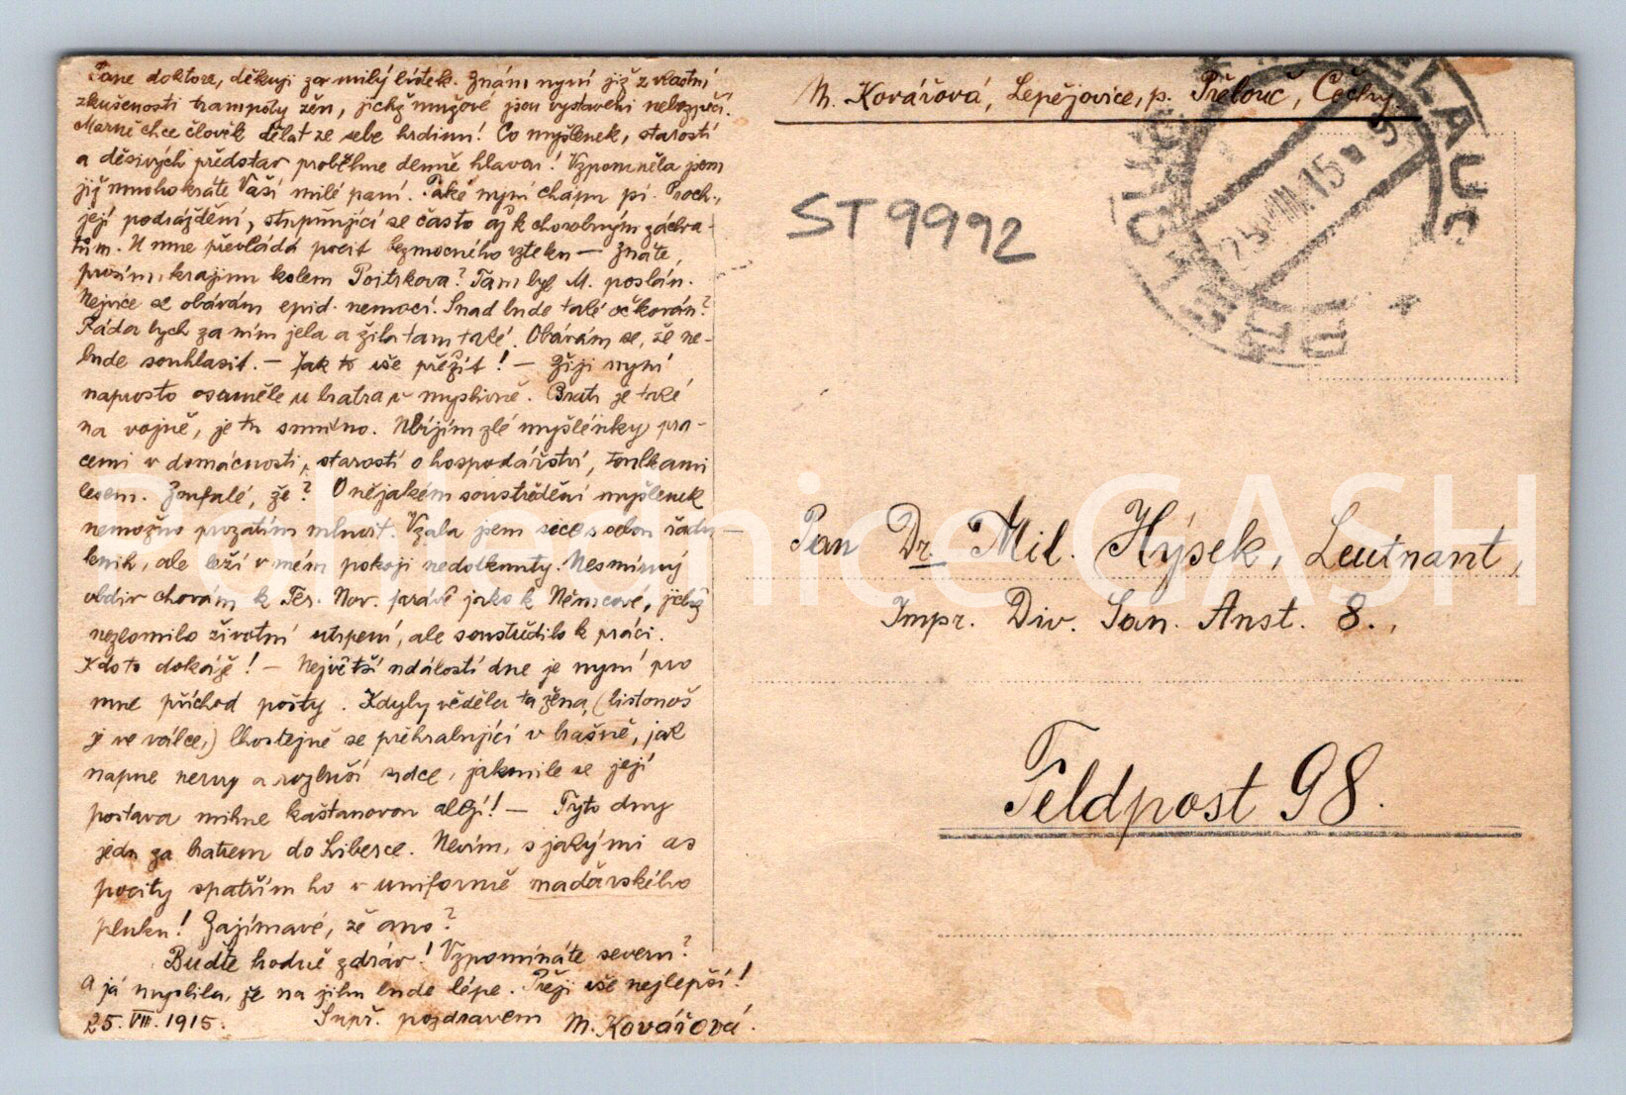 Pane doktore, děkuji za milý lístek. Znám nyní již z vlastní
zkušenosti trampoty žen, jichž mužové jsou vystaveni nebezpečí.
Marně chce člověk dělat ze sebe hrdinu! Co myšlenek, starostí
a děsivých představ proběhne denně hlavou! Vzpomněla jsem
již mnohokráte Vaší milé paní. Také nyní chápu pí. Proch.,
její podráždění, stupňující se často až k chorobným záchva-
tům. U mne převládá pocit bezmocného vzteku — Znáte,
prosím, krajinu kolem Piotrkova? Tam byl M. poslán.
Nejvíce se obávám epid. nemocí. Snad bude také očkován?
Ráda bych za ním jela a žila tam také. Obávám se, že ne-
bude souhlasit. — Jak to vše přežít! — Žiji nyní
naprosto osaměle u bratra v myslivně. Bratr je také
na vojně, je tu smutno. Ubíjím zlé myšlénky pra-
cemi v domácnosti, starostí o hospodářství, toulkami
lesem. Zoufalé, že? O nějakém soustředění myšlenek
nemožno prozatím mluvit. Vzala jsem sice s sebou
ale leží v mém pokoji nedotknutý. Nesmírný
obdiv chovám k Ter. Nov. právě jako k Němcové, jichž
nezlomilo životní utrpení, ale soustředilo k práci.
Kdo to dokáže! — Největší událostí dne je nyní pro
mne příchod pošty. Kdyby věděla ta žena, (listonoš
je ve válce,) lhostejně se přehrabující v brašně, jak
napne nervy a rozbuší srdce, jakmile se její
postava mihne kaštanovou alejí! — Tyto dny
jedu za bratrem do Liberce. Nevím, s jakými as
pocity spatřím ho v uniformě maďarského
pluku! Zajímavé, že ano?
Buďte hodně zdráv! Vzpomínáte severu?
A já myslila, že na jihu bude lépe. Přeji vše nejlepší!
25. VII. 1915. Supř. pozdravem M. Kovářová.
M. Kovářová, Lepějovice, p. Přelouč, Čechy
ST9992
25 VIII. 15
Pan Dr. Mil. Hýsek, Leutnant,
Impr. Div. San. Anst. 8.,
Feldpost 98.
Pohlednice GASH